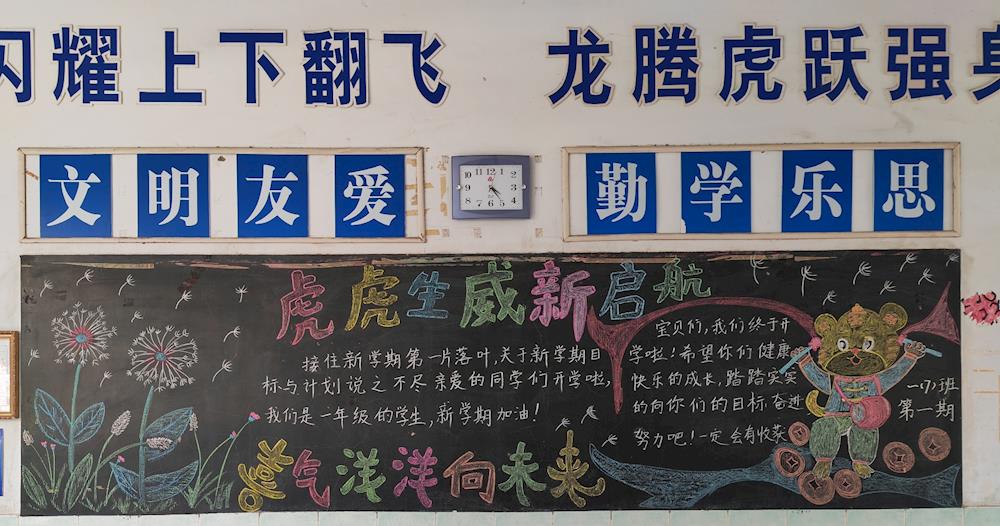 闪耀上下翻飞 龙腾虎跃强身
文明友爱
勤学乐思
10 11 12 1
9 2
8 3
7 6 5 4
虎虎生威新启航
接住新学期第一片落叶,关于新学期目
标与计划说之不尽亲爱的同学们开学啦,
我们是一年级的学生,新学期加油!
宝贝们,我们终于开
学啦!希望你们健康
快乐的成长,踏踏实实
的向你们的目标奋进
努力吧!一定会有收获
一(7)班
第一期
喜气洋洋向未来